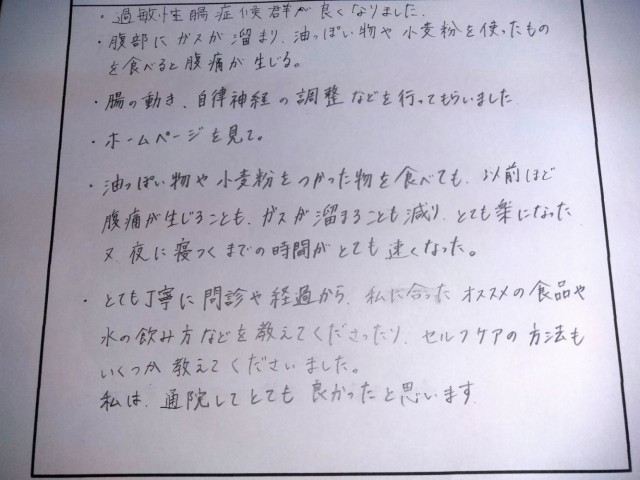 ・過敏性腸症候群が良くなりました.
・腹部にガスが溜まり、油っぽい物や小麦粉を使ったもの
を食べると腹痛が生じる。
・腸の動き、自律神経の調整などを行ってもらいました
・ホームページを見て。
・油っぽい物や小麦粉をつかった物を食べても、以前ほど
腹痛が生じることも、ガスが溜まることも減り、とても楽になった
又、夜に寝つくまでの時間がとても速くなった。
・とても丁寧に問診や経過から、私に合ったオススメの食品や
水の飲み方などを教えてくださったり、セルフケアの方法も
いくつか教えてくださいました。
私は、通院してとても良かったと思います.